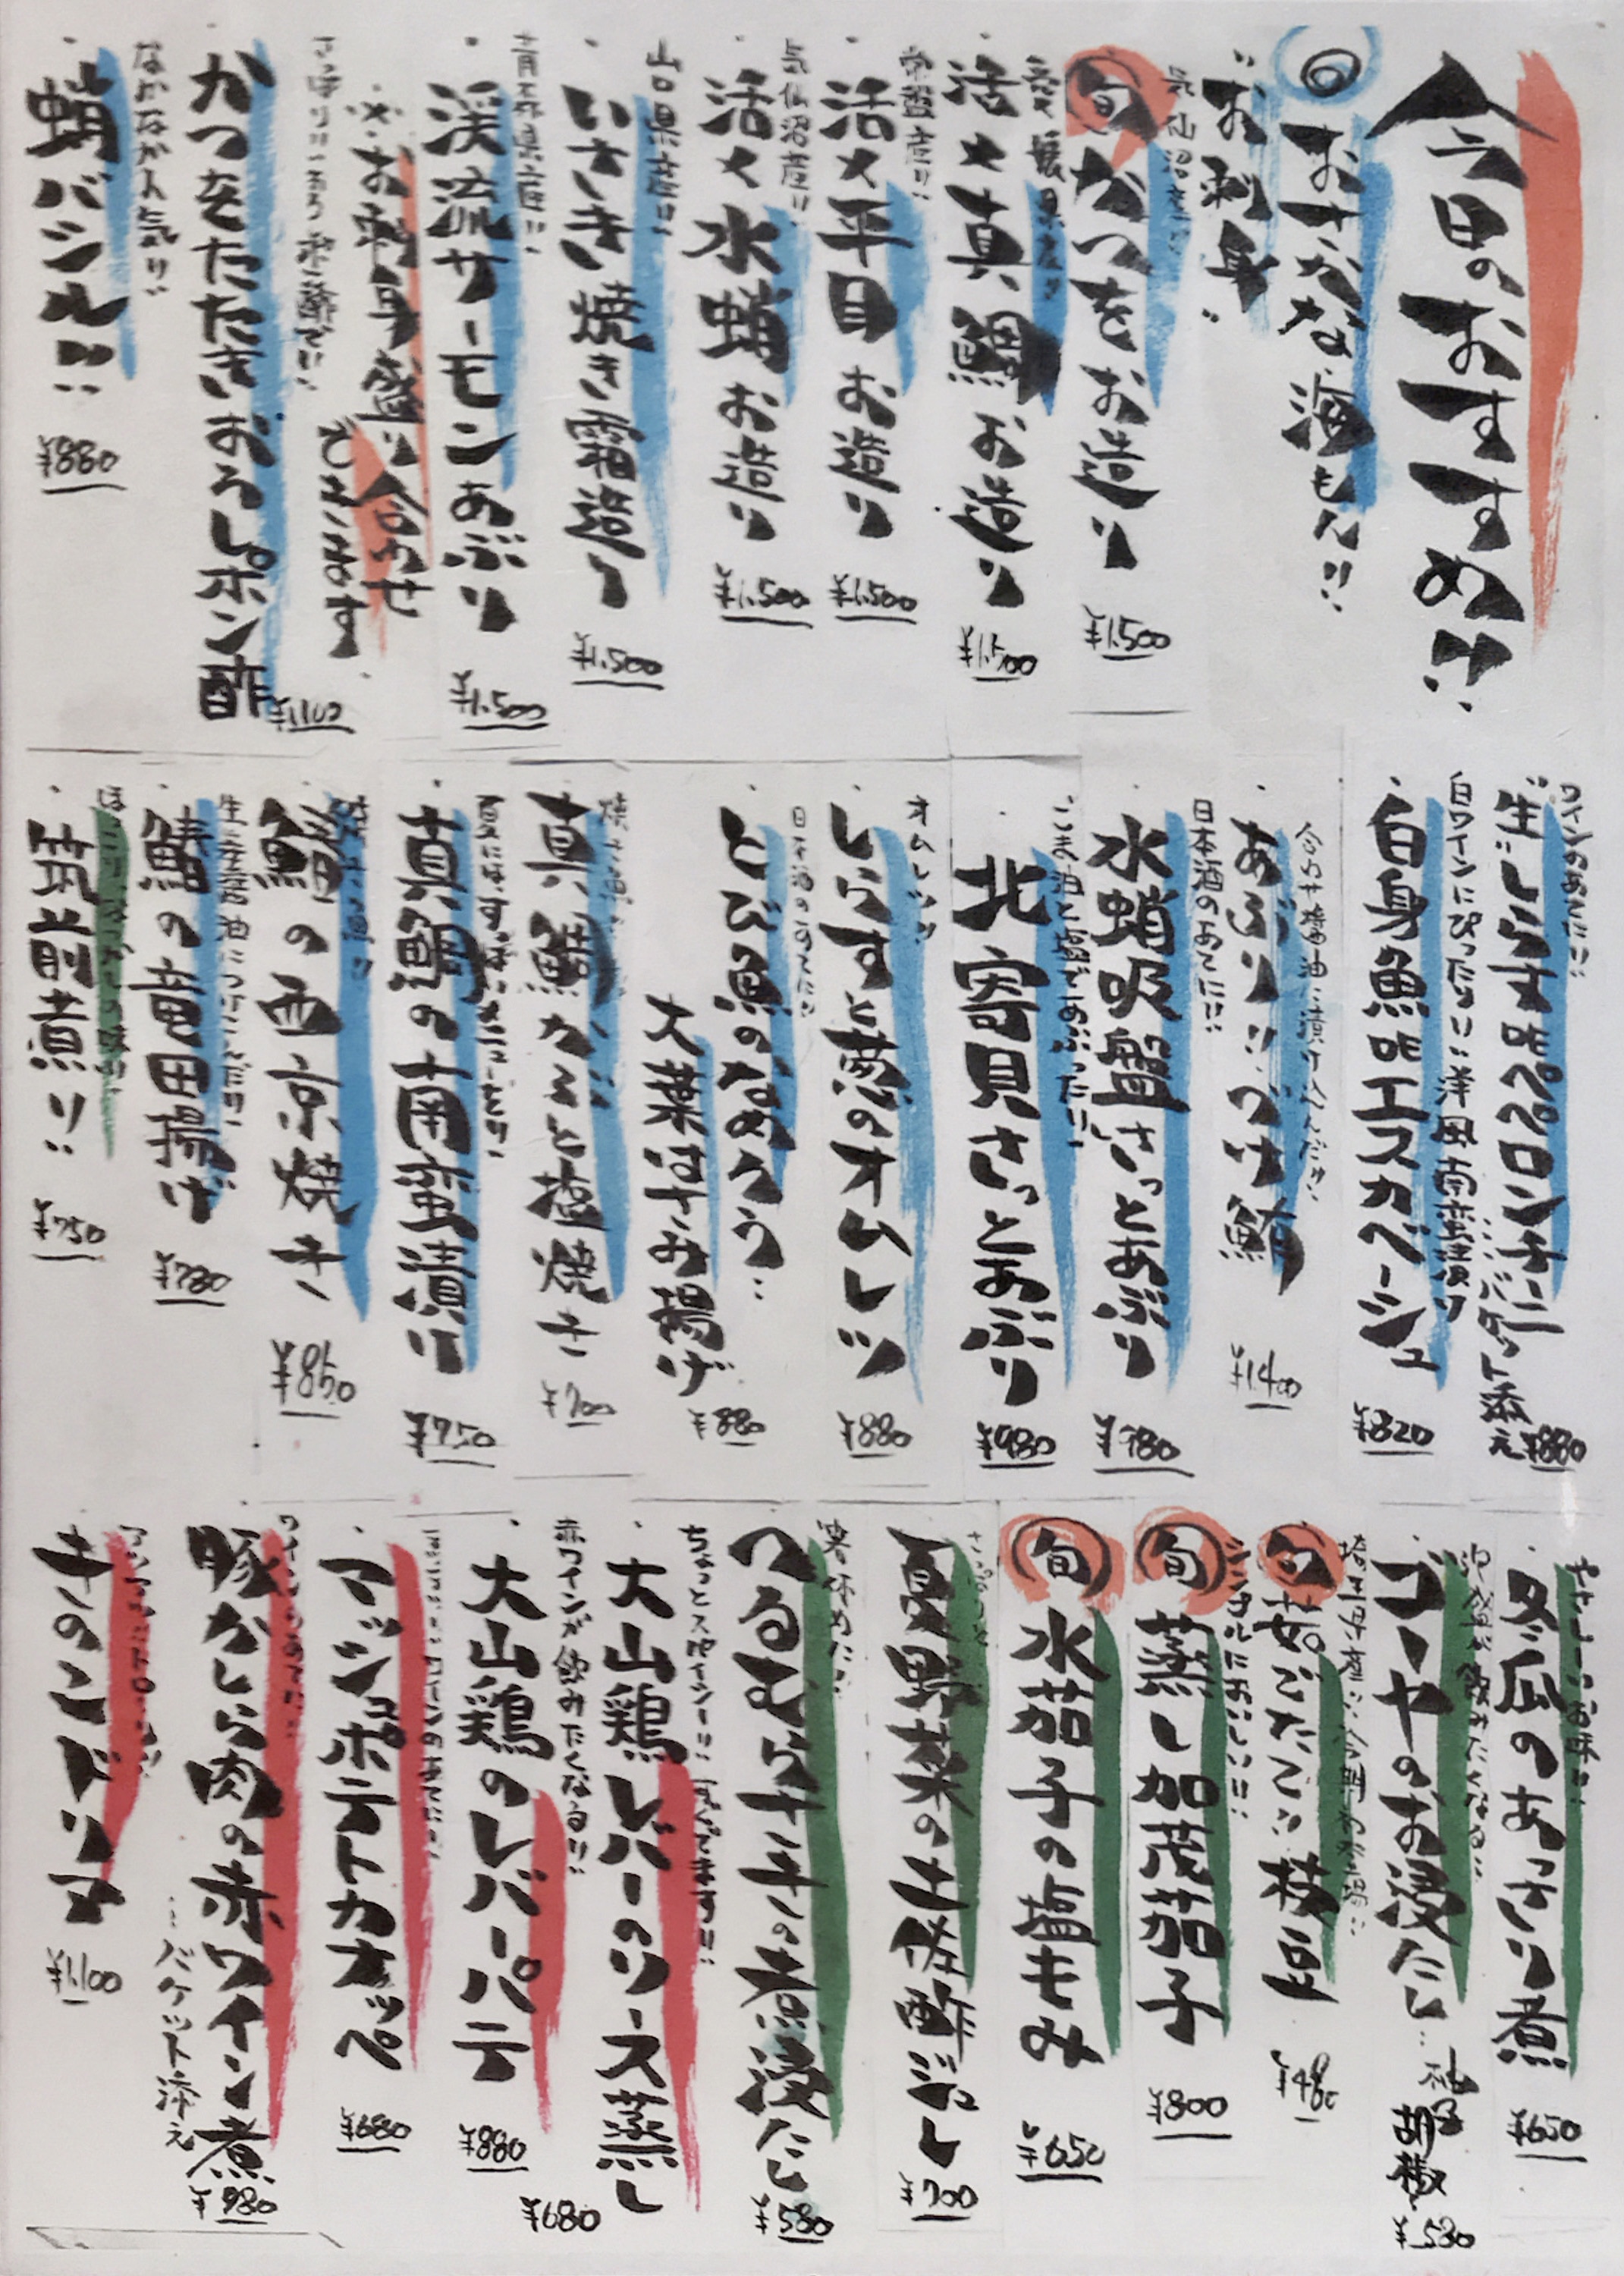 今日のおすすめ!!
◎おさかな海もん!!
"お刺身"
気仙沼産!!
旬 かつをお造り ¥1,500
愛媛県産!!
活〆真鯛お造り ¥1,500
常盤産!!
活〆平目お造り ¥1,500
気仙沼産!!
活〆水蛸お造り ¥1,500
山口県産!!
いさき焼き霜造り ¥1,500
青森県産!!
渓流サーモンあぶり ¥1,500
☆お刺身盛り合わせ
できます
さっぱりおろしポン酢で!!
かつをたたきおろしポン酢 ¥1,100
なかなか人気!!
蛸バジル!! ¥880
ワインのあてに!!
生しらす詰ペペロンチーニ
…バゲット添え ¥880
白ワインにぴったり!!洋風南蛮漬け
白身魚詰エスカベーシュ ¥820
合わせ醤油に漬けこんだ!!
あぶり!!づけ鮪 ¥1400
日本酒のあてに!!
水蛸吸盤さっとあぶり ¥780
ごま油と塩であぶった!!
北寄貝さっとあぶり ¥980
オムレツ!!
しらすと葱のオムレツ ¥880
日本酒のあてに!!
とび魚のなめろう…
大葉はさみ揚げ ¥880
真鯛かぶと塩焼き ¥700
真鯛の南蛮漬け ¥750
焼き魚!!
鰆の西京焼き ¥850
生姜醤油につけこんだ!!
鯖の竜田揚げ ¥780
筑前煮!! ¥750
冬瓜のあっさり煮 ¥650
泡盛が飲みたくなる!!
ゴーヤのお浸たし…柚子胡椒 ¥580
旬 茹でたて!!枝豆 ¥480
シンプルにおいしい!!
旬 蒸し加茂茄子 ¥800
旬 水茄子の塩もみ ¥650
夏野菜の土佐酢ジュレ ¥700
つるむらさきの煮浸たし ¥580
ちょっとスパイシー!!すぐできます!!
大山鶏レバーのリース蒸し ¥680
赤ワインが飲みたくなる!!
大山鶏のレバーパテ ¥880
マッシュポテトカナッペ ¥680
ワインのあてに!!
豚かしら肉の赤ワイン煮
…バゲット添え ¥980
アツアツトロ〜!!
きのこドリア ¥1,100